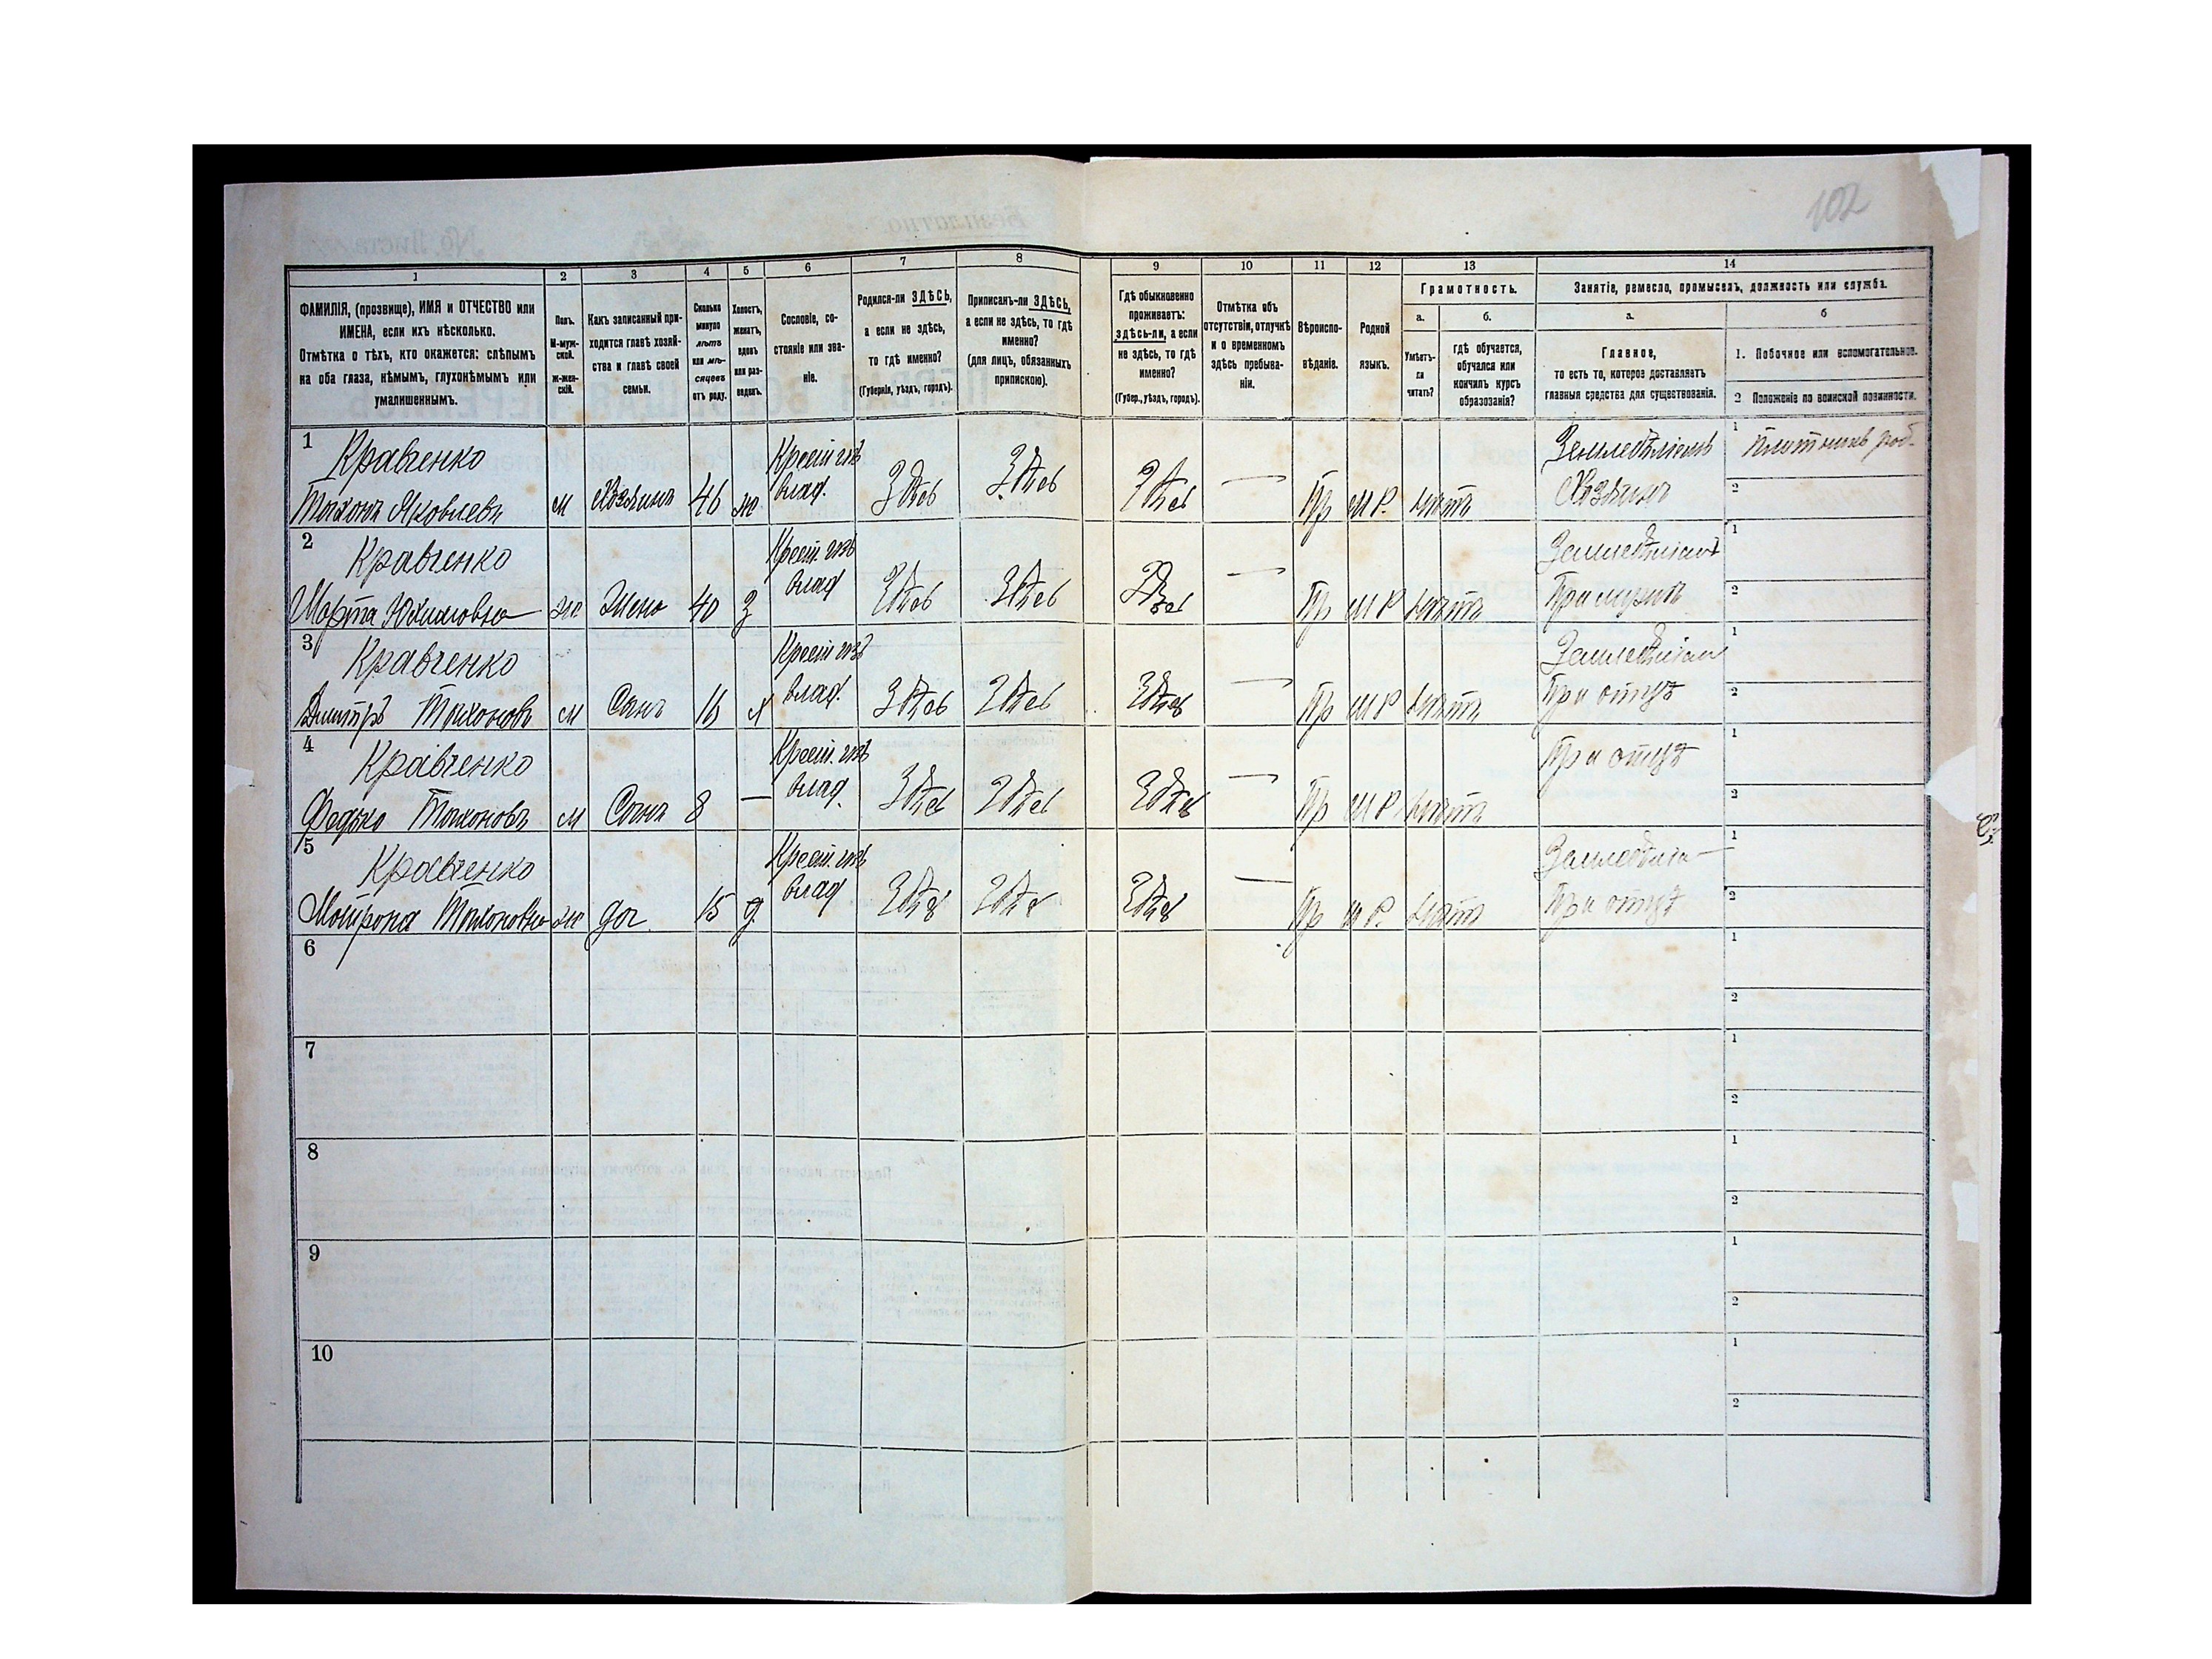 102
1 2 3 4 5 6 7 8 9 10 11 12 13 14
ФАМИЛІЯ, (прозвище), ИМЯ и ОТЧЕСТВО или
ИМЕНА, если ихъ нѣсколько.
Отмѣтка о тѣхъ, кто окажется: слѣпымъ
на оба глаза, нѣмымъ, глухонѣмымъ или
умалишеннымъ.
Полъ.
М-муж-
ской.
Ж-жен-
скій.
Какъ записанный при-
ходится главѣ хозяй-
ства и главѣ своей
семьи.
Сколько
минуло
лѣтъ
или мѣ-
сяцевъ
отъ роду.
Холостъ,
женатъ,
вдовъ
или раз-
веденъ.
Сословіе, со-
стояніе или зва-
ніе.
Родился-ли ЗДѢСЬ,
а если не здѣсь,
то гдѣ именно?
(Губернія, уѣздъ, городъ).
Приписанъ-ли ЗДѢСЬ,
а если не здѣсь, то гдѣ
именно?
(для лицъ, обязанныхъ
припискою).
Гдѣ обыкновенно
проживаетъ:
здѣсь-ли, а если
не здѣсь, то гдѣ
именно?
(Губер., уѣздъ, городъ).
Отмѣтка объ
отсутствіи, отлучкѣ
и о временномъ
здѣсь пребыва-
ніи.
Вѣроиспо-
вѣданіе.
Родной
языкъ.
Грамотность.
а.
Умѣетъ-
ли
читать?
б.
гдѣ обучается,
обучался или
кончилъ курсъ
образованія?
Занятіе, ремесло, промыселъ, должность или служба.
а.
Главное,
то есть то, которое доставляетъ
главныя средства для существованія.
б
1. Побочное или вспомогательное.
2 Положеніе по воинской повинности.
1 Кравченко Крест. Земледѣліемъ 1
Тихонъ Яковлевъ м Хозяинъ 46 ж влад. Здѣсь Здѣсь Здѣсь — Пр М Р. нѣтъ Хозяинъ 2
2 Кравченко Крест. 1
Марта Юхимовна ж Жена 40 З влад Здѣсь Здѣсь Здѣсь — Пр М Р нѣтъ При мужѣ 2
3 Кравченко Крест 1
Дмитръ Тихоновъ м Сынъ 16 х влад. Здѣсь Здѣсь Здѣсь — Пр М Р нѣтъ При отцѣ 2
4 Кравченко Крест. При отцѣ 1
Федько Тихоновъ м Сынъ 8 — влад. Здѣсь Здѣсь Здѣсь — Пр М Р нѣтъ 2
5 Кравченко Крест. 1
Мотрона Тихоновна ж доч. 15 д. влад Здѣсь Здѣсь Здѣсь — Пр М Р. нѣтъ При отцѣ 2
6 1
2
7 1
2
8 1
2
9 1
2
10 1
2